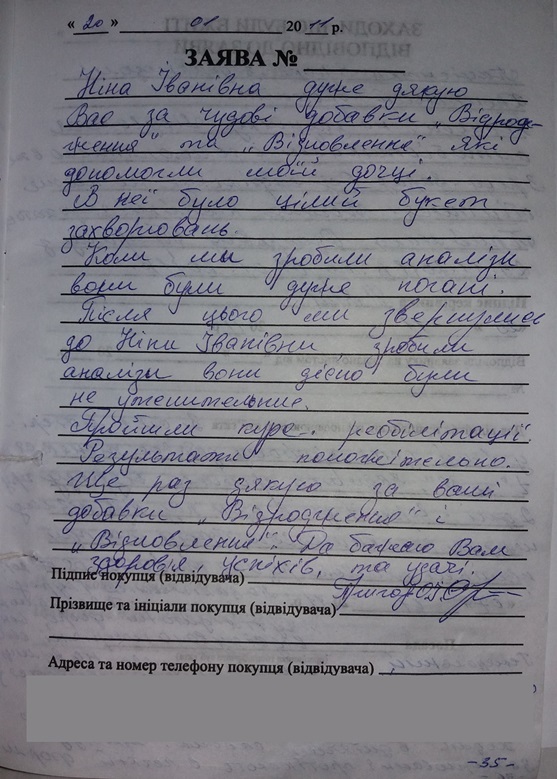 « 20 » 01 2011 р.
ЗАЯВА №
Ніна Іванівна дуже дякую
Вас за чудові добавки „Відрод-
ження" та „Відновлення" які
допомогли моїй дочці.
В неї було цілий букет
захворювань.
Коли мы зробили аналізи
вони були дуже погані.
Після цього ми звернулися
до Ніни Іванівни зробили
аналізи вони дісно були
не утешительние.
Пройшли курс реабілітації.
Результати положітельно.
Ще раз дякую за ваші
добавки „Відродження" і
„Відновлення". Да бажаю Вам
здоров'я, успіхів, та удачі.
Підпис покупця (відвідувача)
Прізвище та ініціали покупця (відвідувача)
Адреса та номер телефону покупця (відвідувача)
-35-